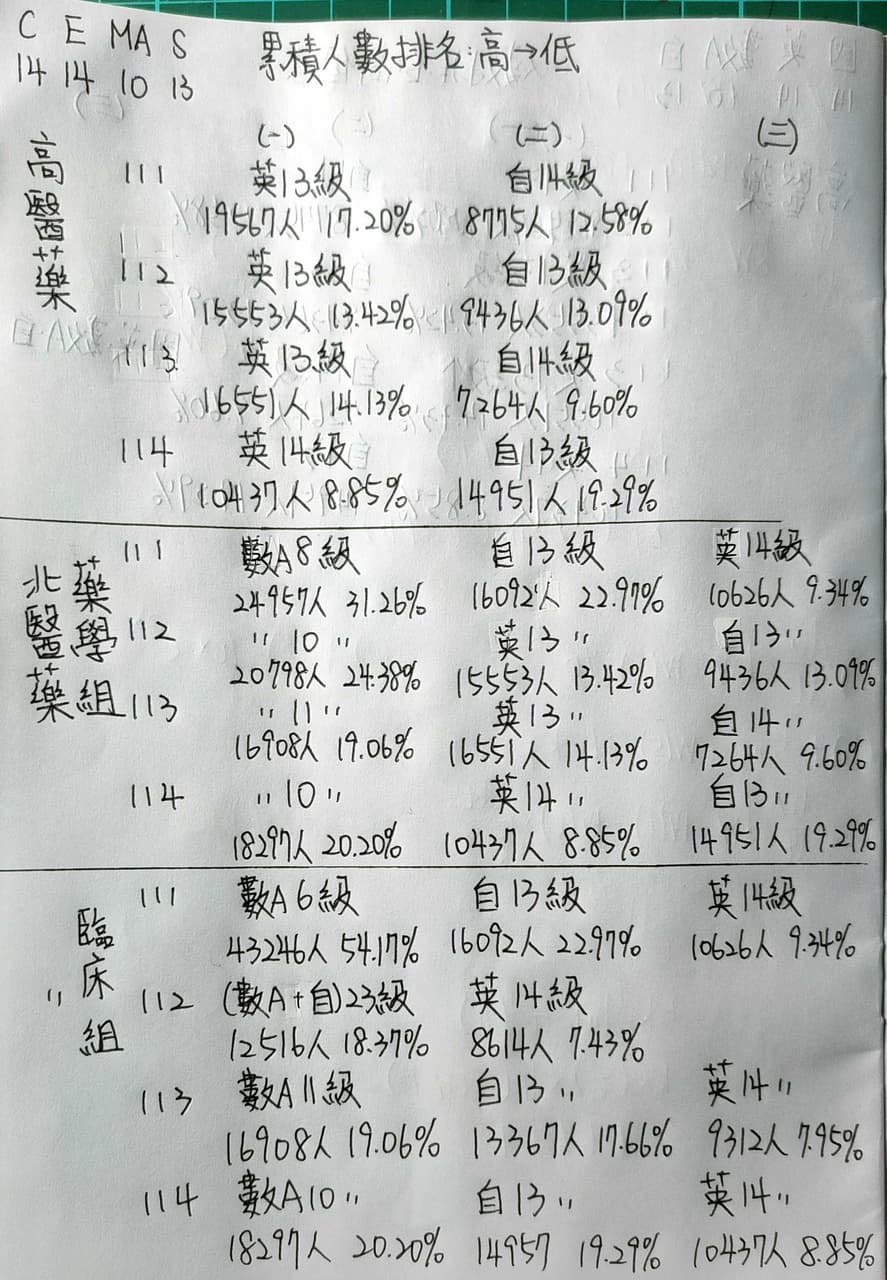 C E MA S 累積人數排名:高→低
14 14 10 13
(一) (二) (三)
高醫藥
111 英13級 自14級
19567人 17.20% 8775人 12.58%
112 英13級 自13級
15553人 13.42% 9436人 13.09%
113 英13級 自14級
16551人 14.13% 7264人 9.60%
114 英14級 自13級
10437人 8.85% 14951人 19.29%
北醫藥 藥學組
111 數A8級 自13級 英14級
24957人 31.26% 16092人 22.97% 10626人 9.34%
112 〃 10 〃 英13〃 自13〃
20798人 24.38% 15553人 13.42% 9436人 13.09%
113 〃 11 〃 英13〃 自14〃
16908人 19.06% 16551人 14.13% 7264人 9.60%
114 〃 10 〃 英14〃 自13〃
18297人 20.20% 10437人 8.85% 14951人 19.29%
〃 臨床組
111 數A6級 自13級 英14級
43246人 54.17% 16092人 22.97% 10626人 9.34%
112 (數A+自)23級 英14級
12516人 18.37% 8614人 7.43%
113 數A11級 自13〃 英14〃
16908人 19.06% 13367人 17.66% 9312人 7.95%
114 數A10〃 自13〃 英14〃
18297人 20.20% 14957 19.29% 10437人 8.85%